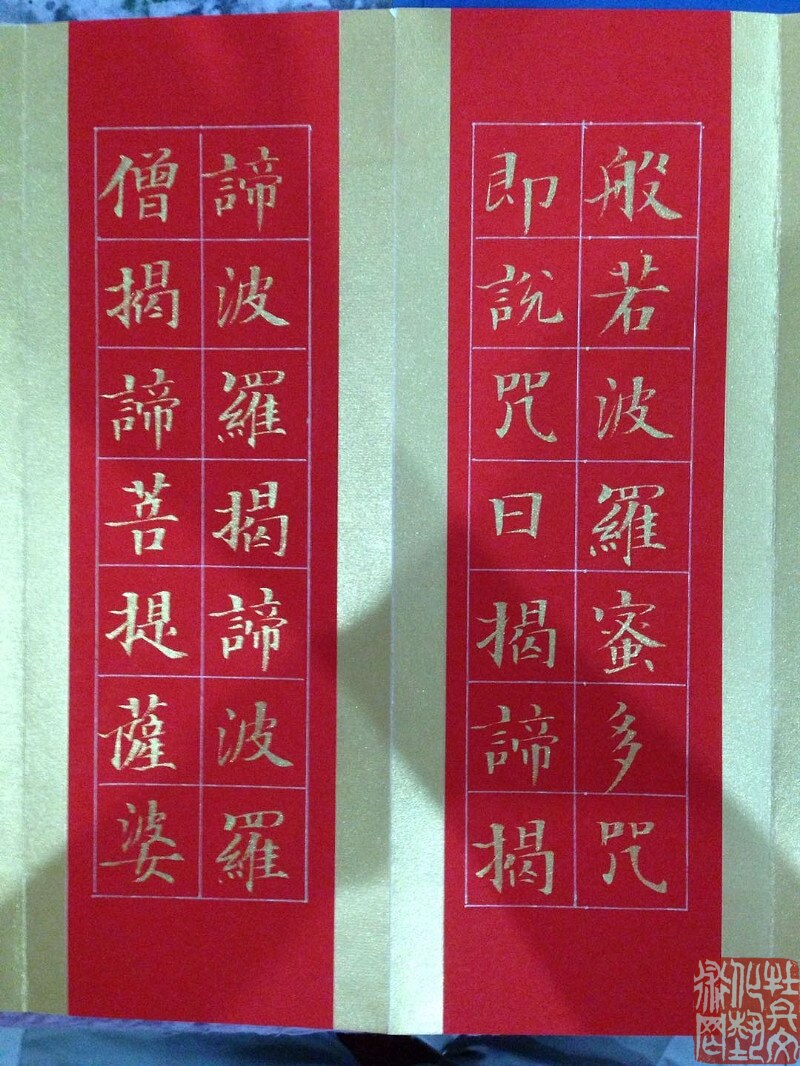 般若波羅蜜多咒
即說咒曰揭諦揭
諦波羅揭諦波羅
僧揭諦菩提薩婆